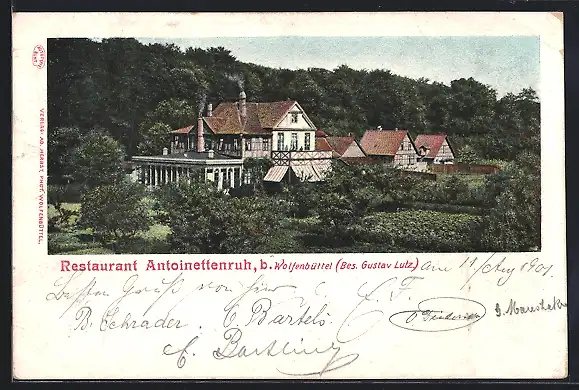 VERLAG: AD. HERBST, PHOT. WOLFENBÜTTEL.
Restaurant Antoinettenruh, b. Wolfenbüttel (Bes. Gustav Lutz) Am 11 Aug 1901
Besten Gruß von hier
B. Schrader. C Bartels
C. Bartling